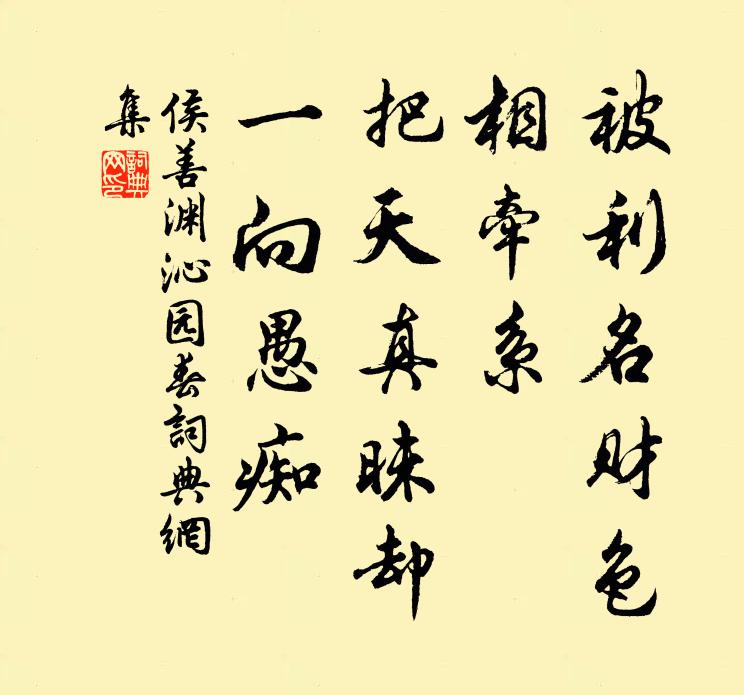 被利名财色
相牵系
把天真昧却
一向愚痴
侯善渊沁园春詞典網
集
詞典
网印